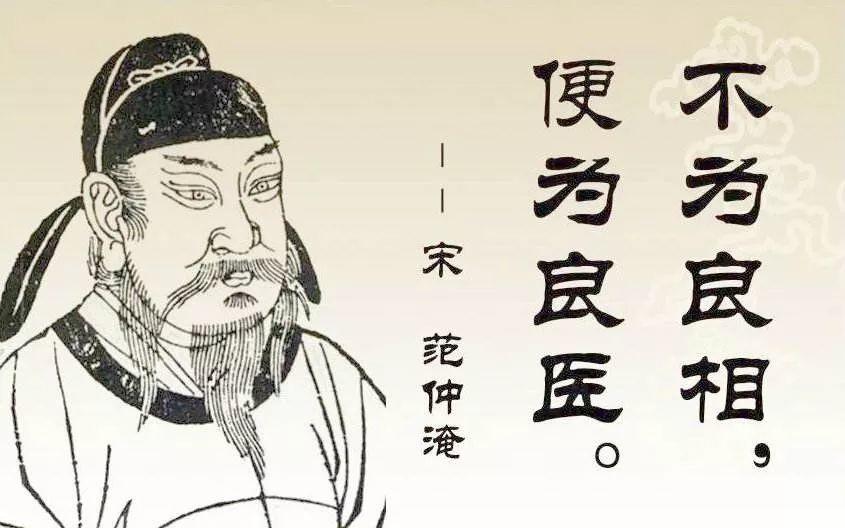 不为良相，
便为良医。
——宋 范仲淹